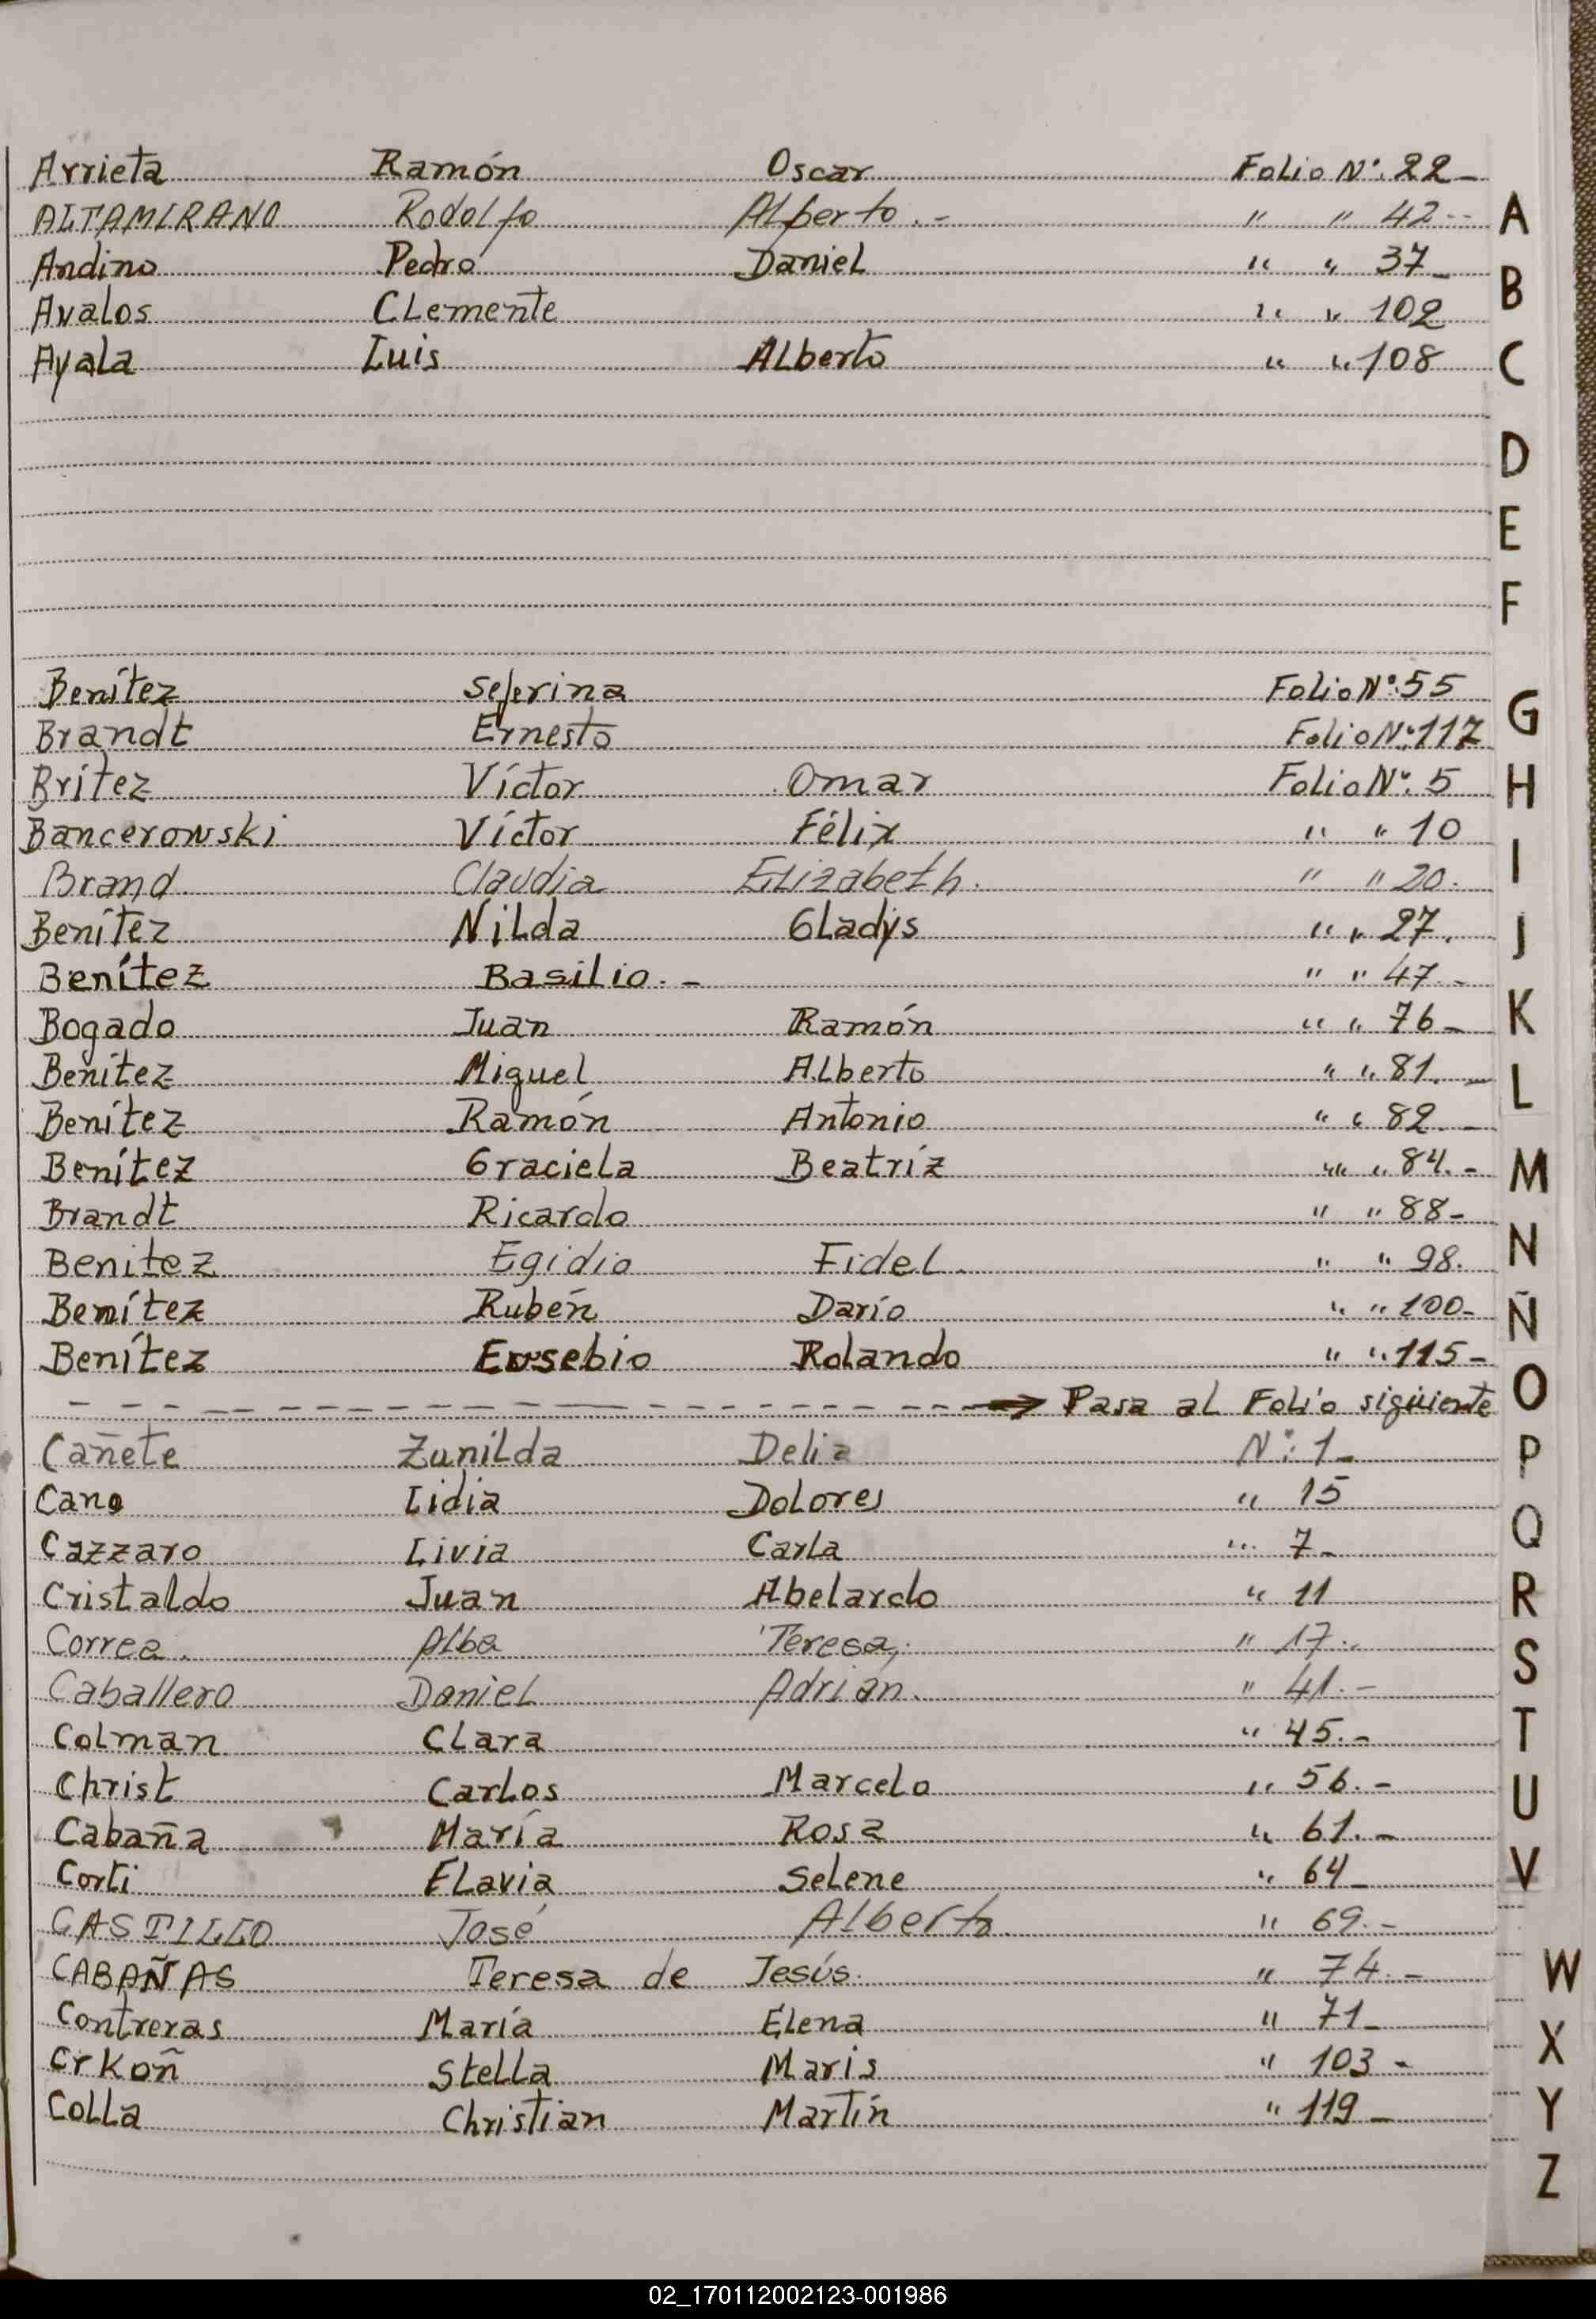 Arrieta Ramón Oscar Folio Nº: 22-
ALTAMIRANO Rodolfo Alberto.- " " 42--
Andino Pedro Daniel " " 37-
Avalos Clemente " " 102
Ayala Luis Alberto " " 108
A
B
C
D
E
F
Benítez Seferina Folio Nº: 55
Brandt Ernesto Folio Nº: 117
Brítez Víctor Omar Folio Nº: 5
Bancerowski Víctor Félix " " 10
Brand Claudia Elizabeth. " " 20.
Benítez Nilda Gladys " " 27.
Benítez Basilio.- " " 47.-
Bogado Juan Ramón " " 76-
Benítez Miguel Alberto " " 81.-
Benítez Ramón Antonio " " 82.-
Benítez Graciela Beatríz " " 84.-
Brandt Ricardo " " 88-
Benitez Egidio Fidel. " " 98.
Benítez Rubén Darío " " 100-
Benítez Eusebio Rolando " " 115-
→ Pasa al Folio sigüiente
Cañete Zunilda Delia Nº: 1-
Cano Lidia Dolores " 15
Cazzaro Livia Carla " 7-
Cristaldo Juan Abelardo " 11
Correa. Alba Teresa, " 17..
Caballero Daniel Adrián. " 41.-
Colman Clara " 45.-
Christ Carlos Marcelo " 56.-
Cabaña María Rosa " 61.-
Corti Flavia Selene " 64-
CASTILLO José Alberto. " 69.-
CABAÑAS Teresa de Jesús. " 74.-
Contreras María Elena " 71-
Crkoñ Stella Maris " 103-
Colla Christian Martín " 119-
G
H
I
J
K
L
M
N
Ñ
O
P
Q
R
S
T
U
V
W
X
Y
Z
02_170112002123-001986